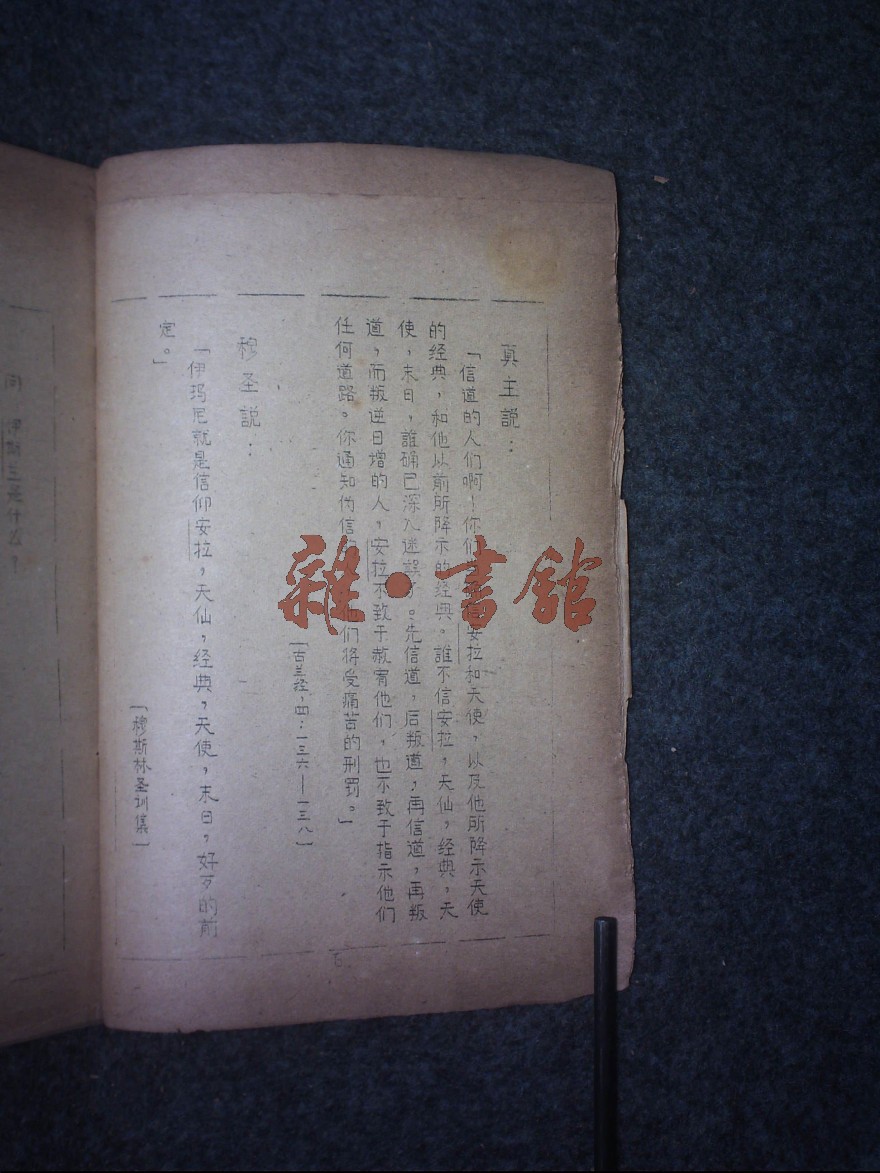 真主説：
「信道的人们啊！你们安拉和天使，以及他所降示天使
的经典，和他以前所降示的经典。誰不信安拉，天仙，经典，天
使，末日，誰确已深入迷誤。先信道，后叛道，再信道，再叛
道，而叛逆日增的人，安拉不致于赦宥他们，也不致于指示他们
任何道路。你通知伪信们将受痛苦的刑罚。」
［古兰经，四：一三六——一三八］
穆圣説：
「伊玛尼就是信仰安拉，天仙，经典，天使，末日，好歹的前
定。」
［穆斯林圣训集］
問 伊斯兰是什么？
雜·書舘